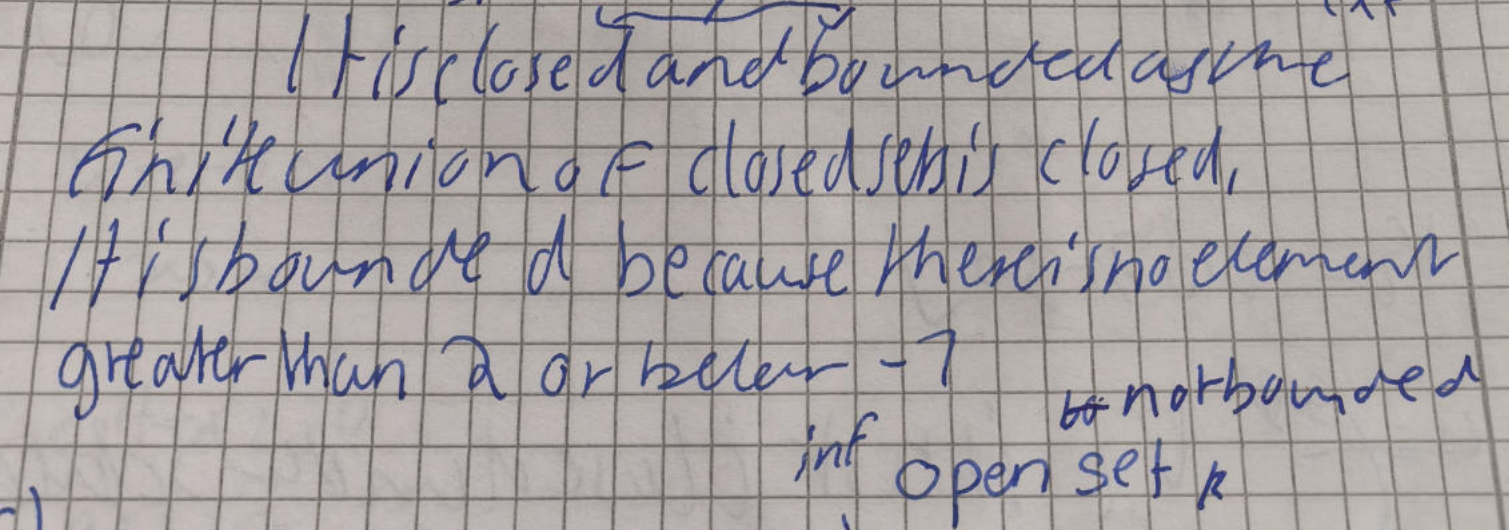 It is closed and bounded as the
finite union of closed sets is closed.
It is bounded because there is no element
greater than 2 or below -1
not bounded
inf open set